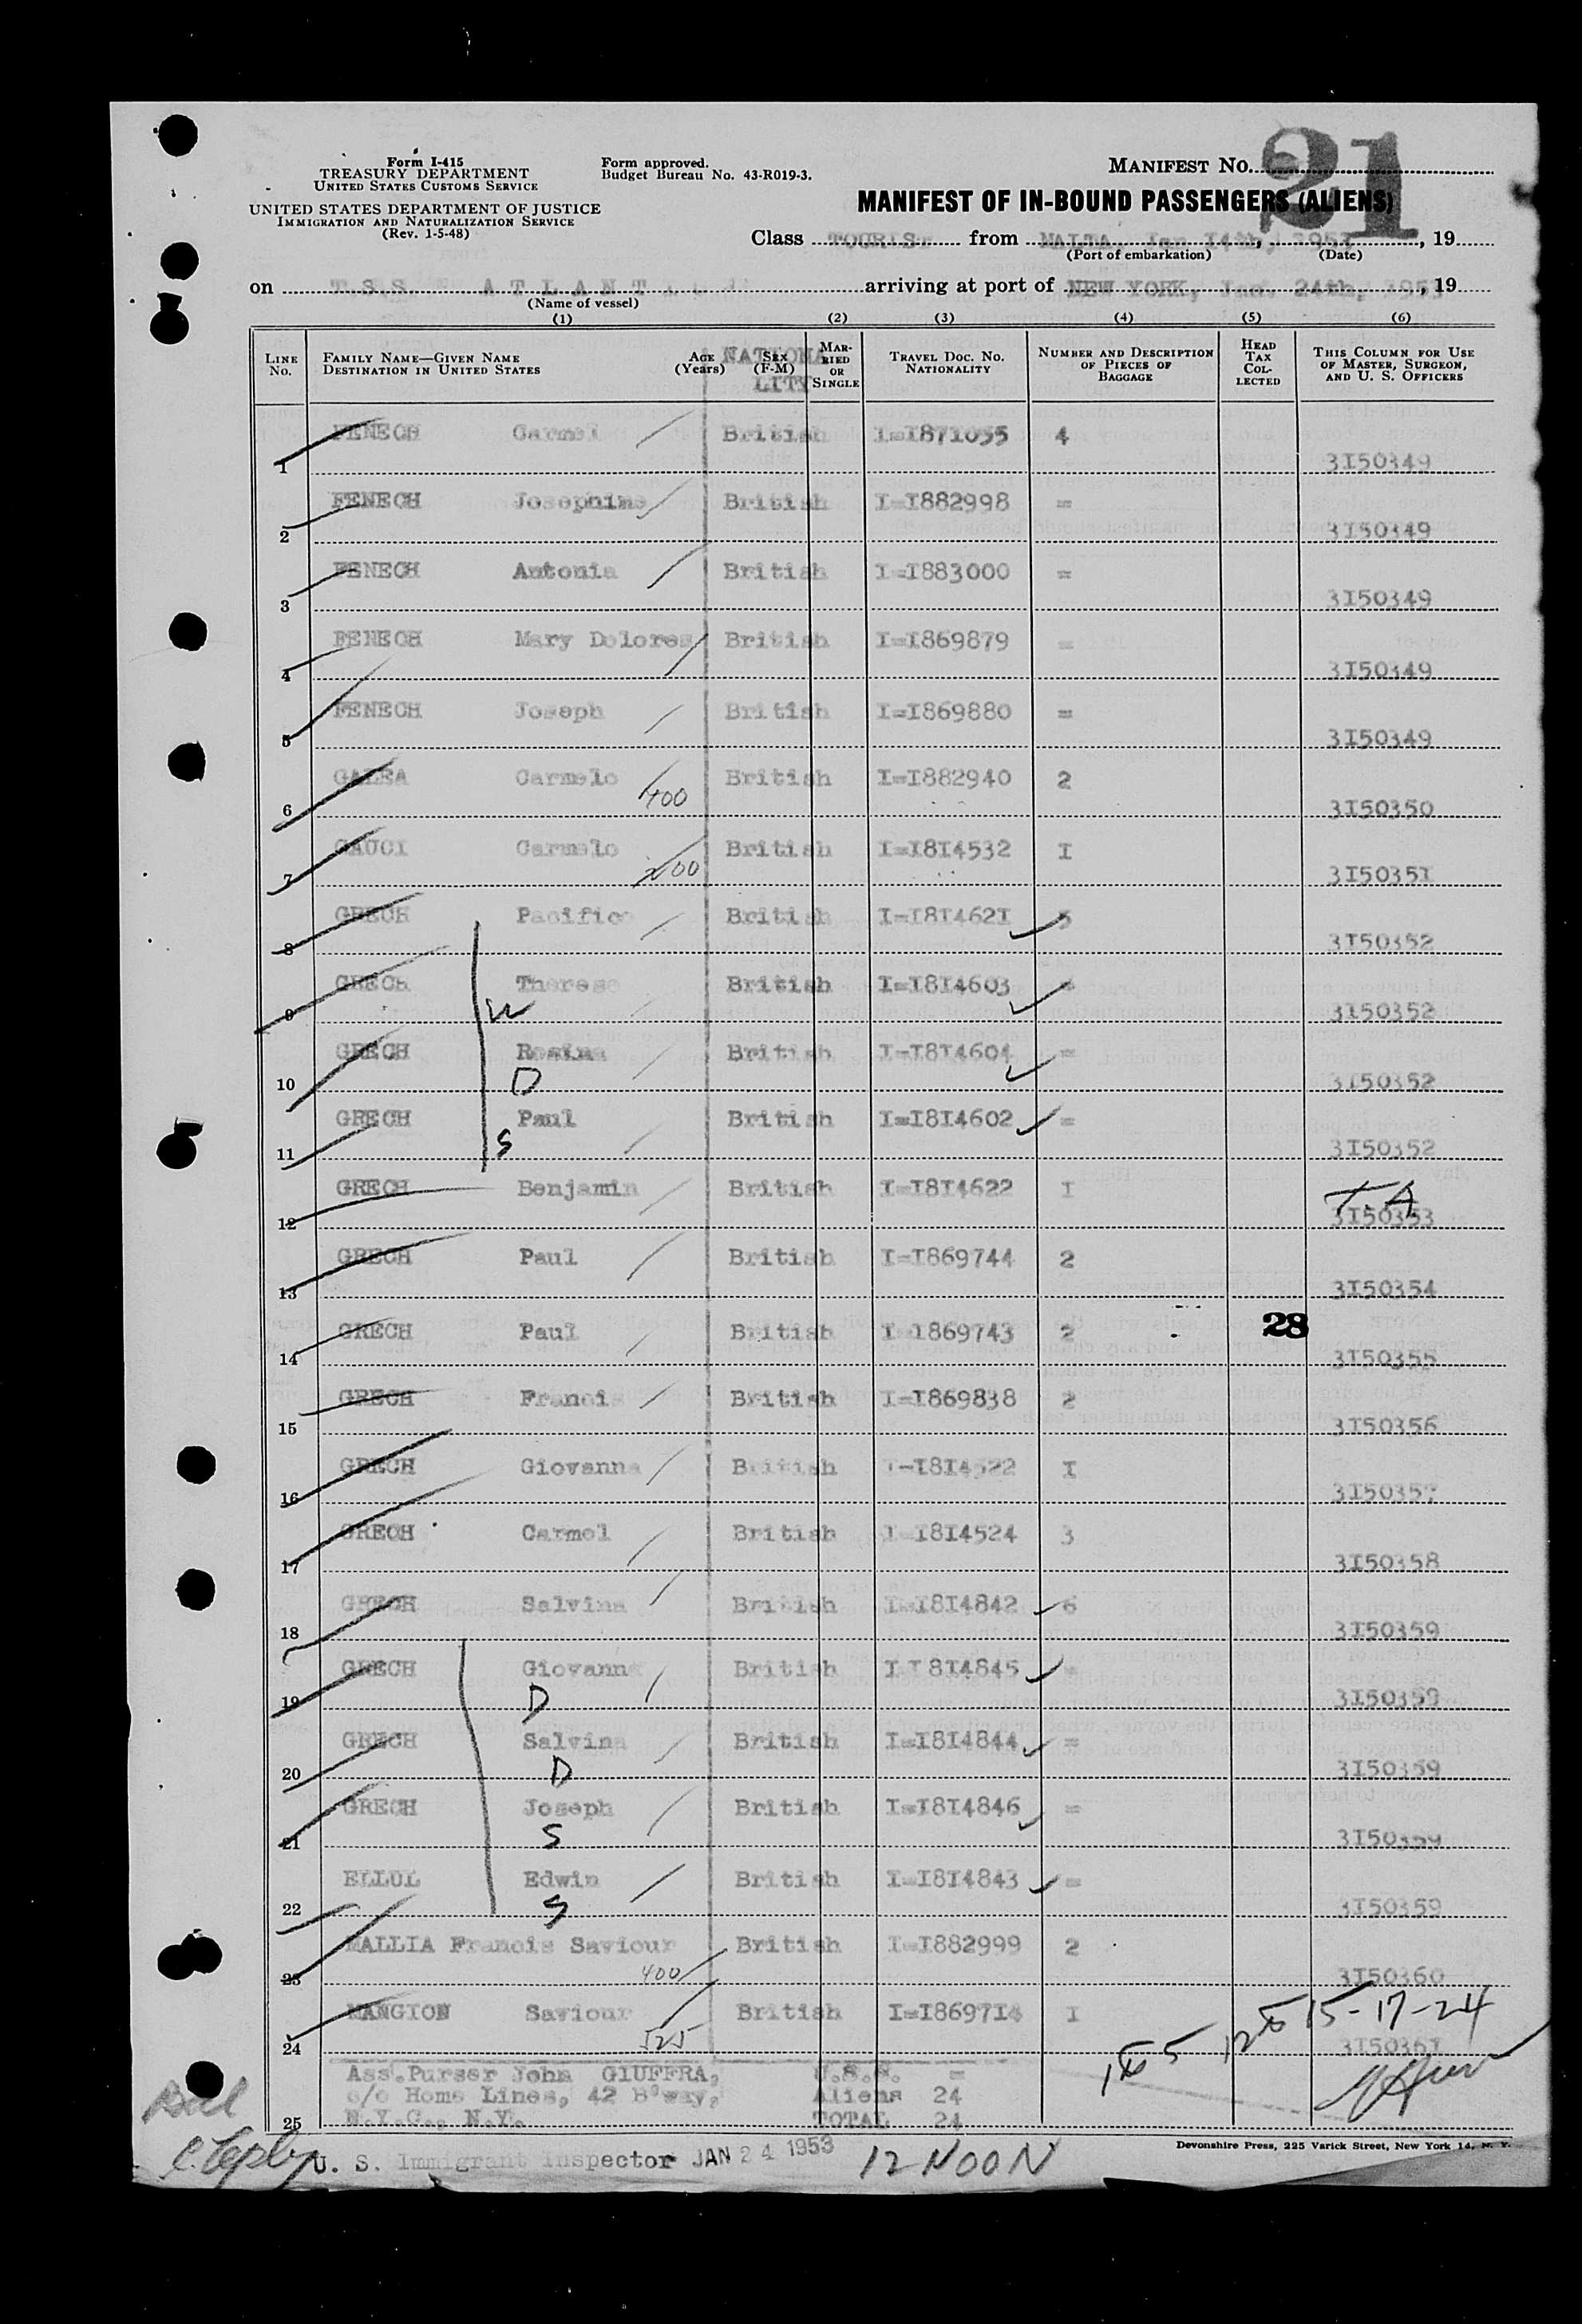 21
Form I-415
TREASURY DEPARTMENT
UNITED STATES CUSTOMS SERVICE
Form approved.
Budget Bureau No. 43-R019-3.
MANIFEST NO.
UNITED STATES DEPARTMENT OF JUSTICE
IMMIGRATION AND NATURALIZATION SERVICE
(Rev. 1-5-48)
MANIFEST OF IN-BOUND PASSENGERS (ALIENS)
Class TOURIST from MALTA, Jan 14th, 1953, 19
(Port of embarkation) (Date)
on T.S.S. ATLANT arriving at port of NEW YORK, Jan. 24th, 1953, 19
(Name of vessel)
(1) (2) (3) (4) (5) (6)
LINE No. FAMILY NAME—GIVEN NAME DESTINATION IN UNITED STATES AGE (Years) NATIONALITY SEX (F-M) MARRIED OR SINGLE TRAVEL DOC. NO. NATIONALITY NUMBER AND DESCRIPTION OF PIECES OF BAGGAGE HEAD TAX COLLECTED THIS COLUMN FOR USE OF MASTER, SURGEON, AND U. S. OFFICERS
1 FENECH Carmel British I=I871055 4 3I50349
2 FENECH Josephine British I=I882998 = 3I50349
3 FENECH Antonia British I=I883000 = 3I50349
4 FENECH Mary Dolores British I=I869879 = 3I50349
5 FENECH Joseph British I=I869880 = 3I50349
6 GALEA Carmelo 400 British I=I882940 2 3I50350
7 GAUCI Carmelo 200 British I=I8I4532 I 3I50351
8 GRECH Pacifico British I=I8I462I 5 3I50352
9 GRECH Therese W British I=I8I4603 = 3I50352
10 GRECH Rosina D British I=I8I4604 = 3I50352
11 GRECH Paul S British I=I8I4602 = 3I50352
12 GRECH Benjamin British I=I8I4622 I T.A 3I50353
13 GRECH Paul British I=I869744 2 3I50354
14 GRECH Paul British I 1869743 2 28 3I50355
15 GRECH Francis British I=I869838 2 3I50356
16 GRECH Giovanna British I=I8I4522 I 3I50357
17 GRECH Carmel British I=I8I4524 3 3I50358
18 GRECH Salvina British I=I8I4842 6 3I50359
19 GRECH Giovanna D British I I8I4845 = 3I50359
20 GRECH Salvina D British I=I8I4844 = 3I50359
21 GRECH Joseph S British I=I8I4846 = 3I50359
22 ELLUL Edwin S British I=I8I4843 = 3I50359
23 MALLIA Francis Saviour 400 British I=I882999 2 3I50360
24 MANGION Saviour 525 British I=I8697I4 I 3I5036I
15-17-24
Ass.Purser John GIUFFRA, U.S.C. =
c/o Home Lines, 42 B'way, Aliens 24
25 N.Y.C., N.Y. TOTAL 24
Devonshire Press, 225 Varick Street, New York 14, N. Y.
U. S. Immigrant Inspector JAN 24 1953 12 NOON